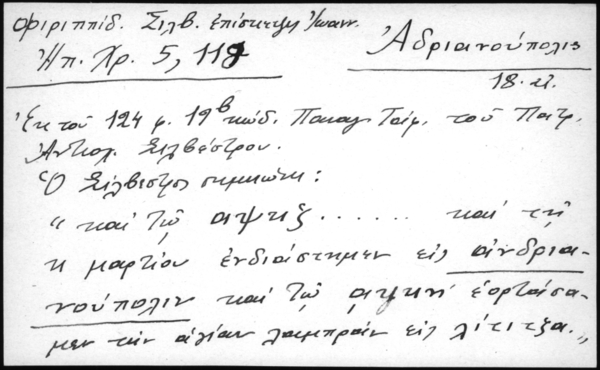 Φιλιππίδ. Σιλβ. ἐπίσκεψις Ἰωανν.
Ἠπ. Χρ. 5, 118
Ἀδριανούπολις
18.
Ἐκ τοῦ 124 φ. 19β κώδ. Παναγ. Τάφ. τοῦ Πατρ.
Ἀντιοχ. Σιλβέστρου.
Ὁ Σίλβεστρος σημειώνει:
"καὶ τῷ αψκξ ...... καὶ τῇ
κ μαρτίου ἐνδιάστημεν εἰς ἀνδρια-
νούπολιν καὶ τῷ αψκη ἑορτάσα-
μεν τὴν ἁγίαν λαμπρὰν εἰς λίτιτζα."